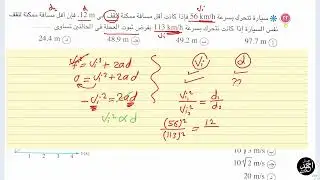 d₂ d₁ vᵢ
* سيارة تتحرك بسرعة 56 km/h فإذا كانت أقل مسافة ممكنة لتقف هي 12 m، فإن أقل مسافة ممكنة لتقف
نفس السيارة إذا كانت تتحرك بسرعة 113 km/h بفرض ثبوت العجلة في الحالتين تساوي
97.7 m ① 49.2 m 48.9 m 24.4 m
vf² = vᵢ² + 2ad
0 = vᵢ² + 2ad
- vᵢ² = 2ad
vᵢ² ∝ d
vᵢ d
✓ ??
vᵢ₁² / vᵢ₂² = d₁ / d₂
(56)² / (113)² = 12
0 1 2 3 4
10 m/s
10√2 m/s
10√3 m/s
20 m/s